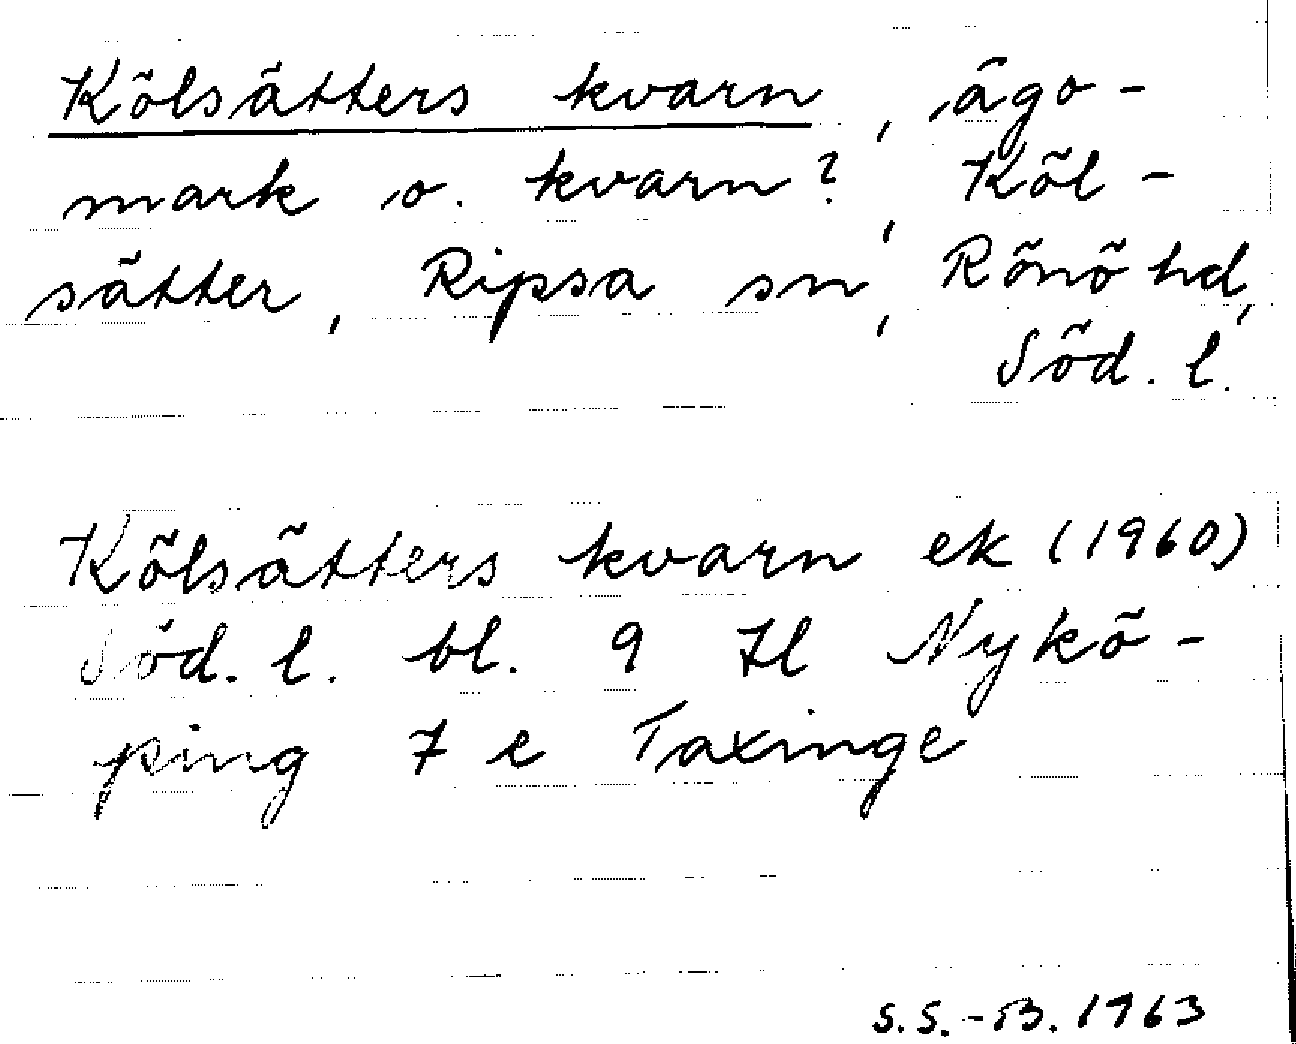 Kölsätters kvarn, ägo-
mark o. kvarn?, Köl-
sätter, Ripsa sn, Rönö hd,
Söd. l.
Kölsätters kvarn ek (1960)
Söd. l. bl. 9 Il Nykö-
ping 7 e Taxinge
S.S.-B. 1963